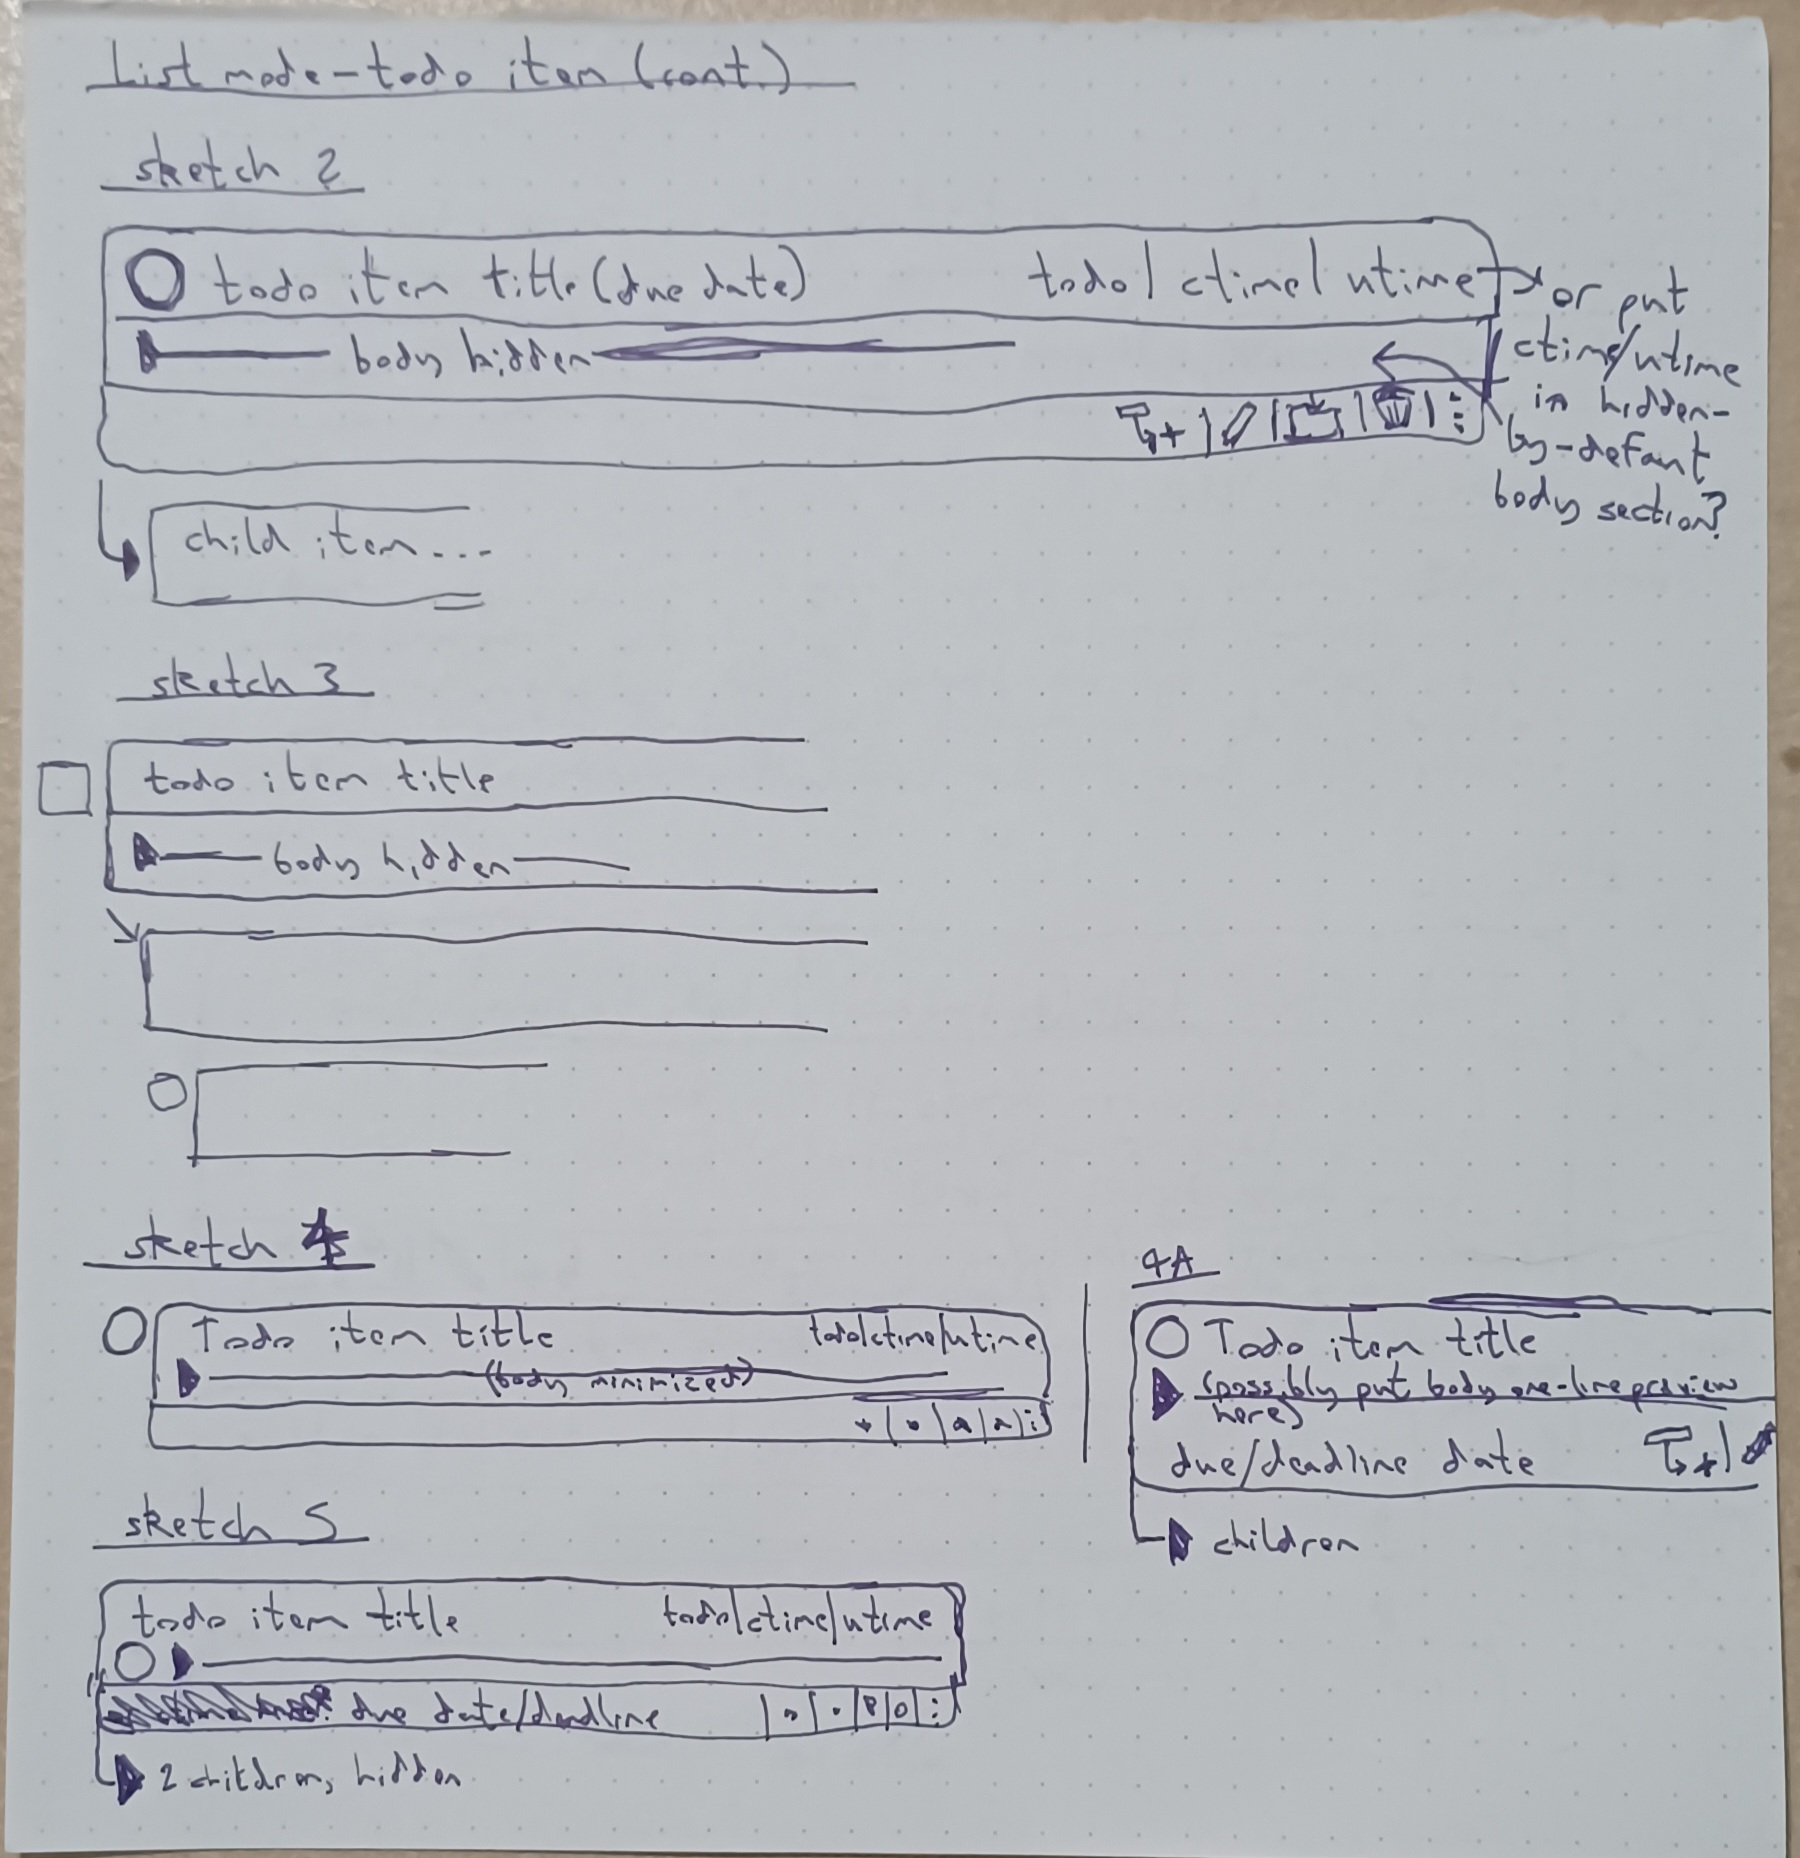 List mode - todo item (cont.)
sketch 2
todo item title (due date) todo | ctime | utime
body hidden
or put
ctime/utime
in hidden-
by-defaut
body section?
child item...
sketch 3
todo item title
body hidden
sketch 4
Todo item title todo|ctime|utime
(body minimized)
4A
Todo item title
(possibly put body one-line preview
here)
due/deadline date
children
sketch 5
todo item title todo|ctime|utime
due date/deadline
2 children, hidden